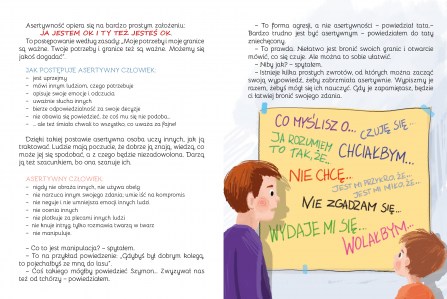 Asertywność opiera się na bardzo prostym założeniu:
JA JESTEM OK I TY TEŻ JESTEŚ OK.
To postępowanie według zasady „Moje potrzeby i moje granice
są ważne. Twoje potrzeby i granice też są ważne. Możemy się
jakoś dogadać".
JAK POSTĘPUJE ASERTYWNY CZŁOWIEK
– jest uprzejmy
– mówi innym ludziom, czego potrzebuje
– opisuje swoje emocje i odczucia
– uważnie słucha innych
– bierze odpowiedzialność za swoje decyzje
– nie obawia się powiedzieć, że coś mu się nie podoba...
– ... ale też śmiało chwali to wszystko, co uważa za fajne!
Dzięki takiej postawie asertywna osoba uczy innych, jak ją
traktować. Ludzie mają poczucie, że dobrze ją znają, wiedzą, co
może jej się spodobać, a z czego będzie niezadowolona. Darzą
ją też szacunkiem, bo ona szanuje ich.
ASERTYWNY CZŁOWIEK
– nigdy nie obraża innych, nie używa obelg
– nie narzuca innym swojego zdania, umie iść na kompromis
– nie neguje i nie umniejsza emocji innych ludzi
– nie ocenia innych
– nie plotkuje za plecami innych ludzi
– nie knuje intryg, tylko rozmawia twarzą w twarz
– nie manipuluje.
– Co to jest manipulacja? – spytałem.
– To na przykład powiedzenie: „Gdybyś był dobrym kolegą,
to pojechałbyś ze mną do lasu".
– Coś takiego mógłby powiedzieć Szymon... Zwyzywał nas
też od tchórzy – powiedziałem.
– To forma agresji, a nie asertywności – powiedział tata.–
Bardzo trudno jest być asertywnym – powiedziałem do taty
zniechęcony.
– To prawda. Niełatwo jest bronić swoich granic i otwarcie
mówić, co się czuje. Ale można to sobie ułatwić.
– Niby jak? – spytałem.
– Istnieje kilka prostych zwrotów, od których można zacząć
swoją wypowiedź, żeby zabrzmiała asertywnie. Wypiszmy je
razem, żebyś mógł się ich nauczyć. Gdy je zapamiętasz, będzie
ci łatwiej bronić swojego zdania.
CO MYŚLISZ O...
CZUJĘ SIĘ...
JA ROZUMIEM
TO TAK, ŻE...
CHCIAŁBYM...
NIE CHCĘ...
JEST MI PRZYKRO, ŻE...
JEST MI MIŁO, ŻE...
NIE ZGADZAM SIĘ...
WYDAJE MI SIĘ...
WOLAŁBYM...